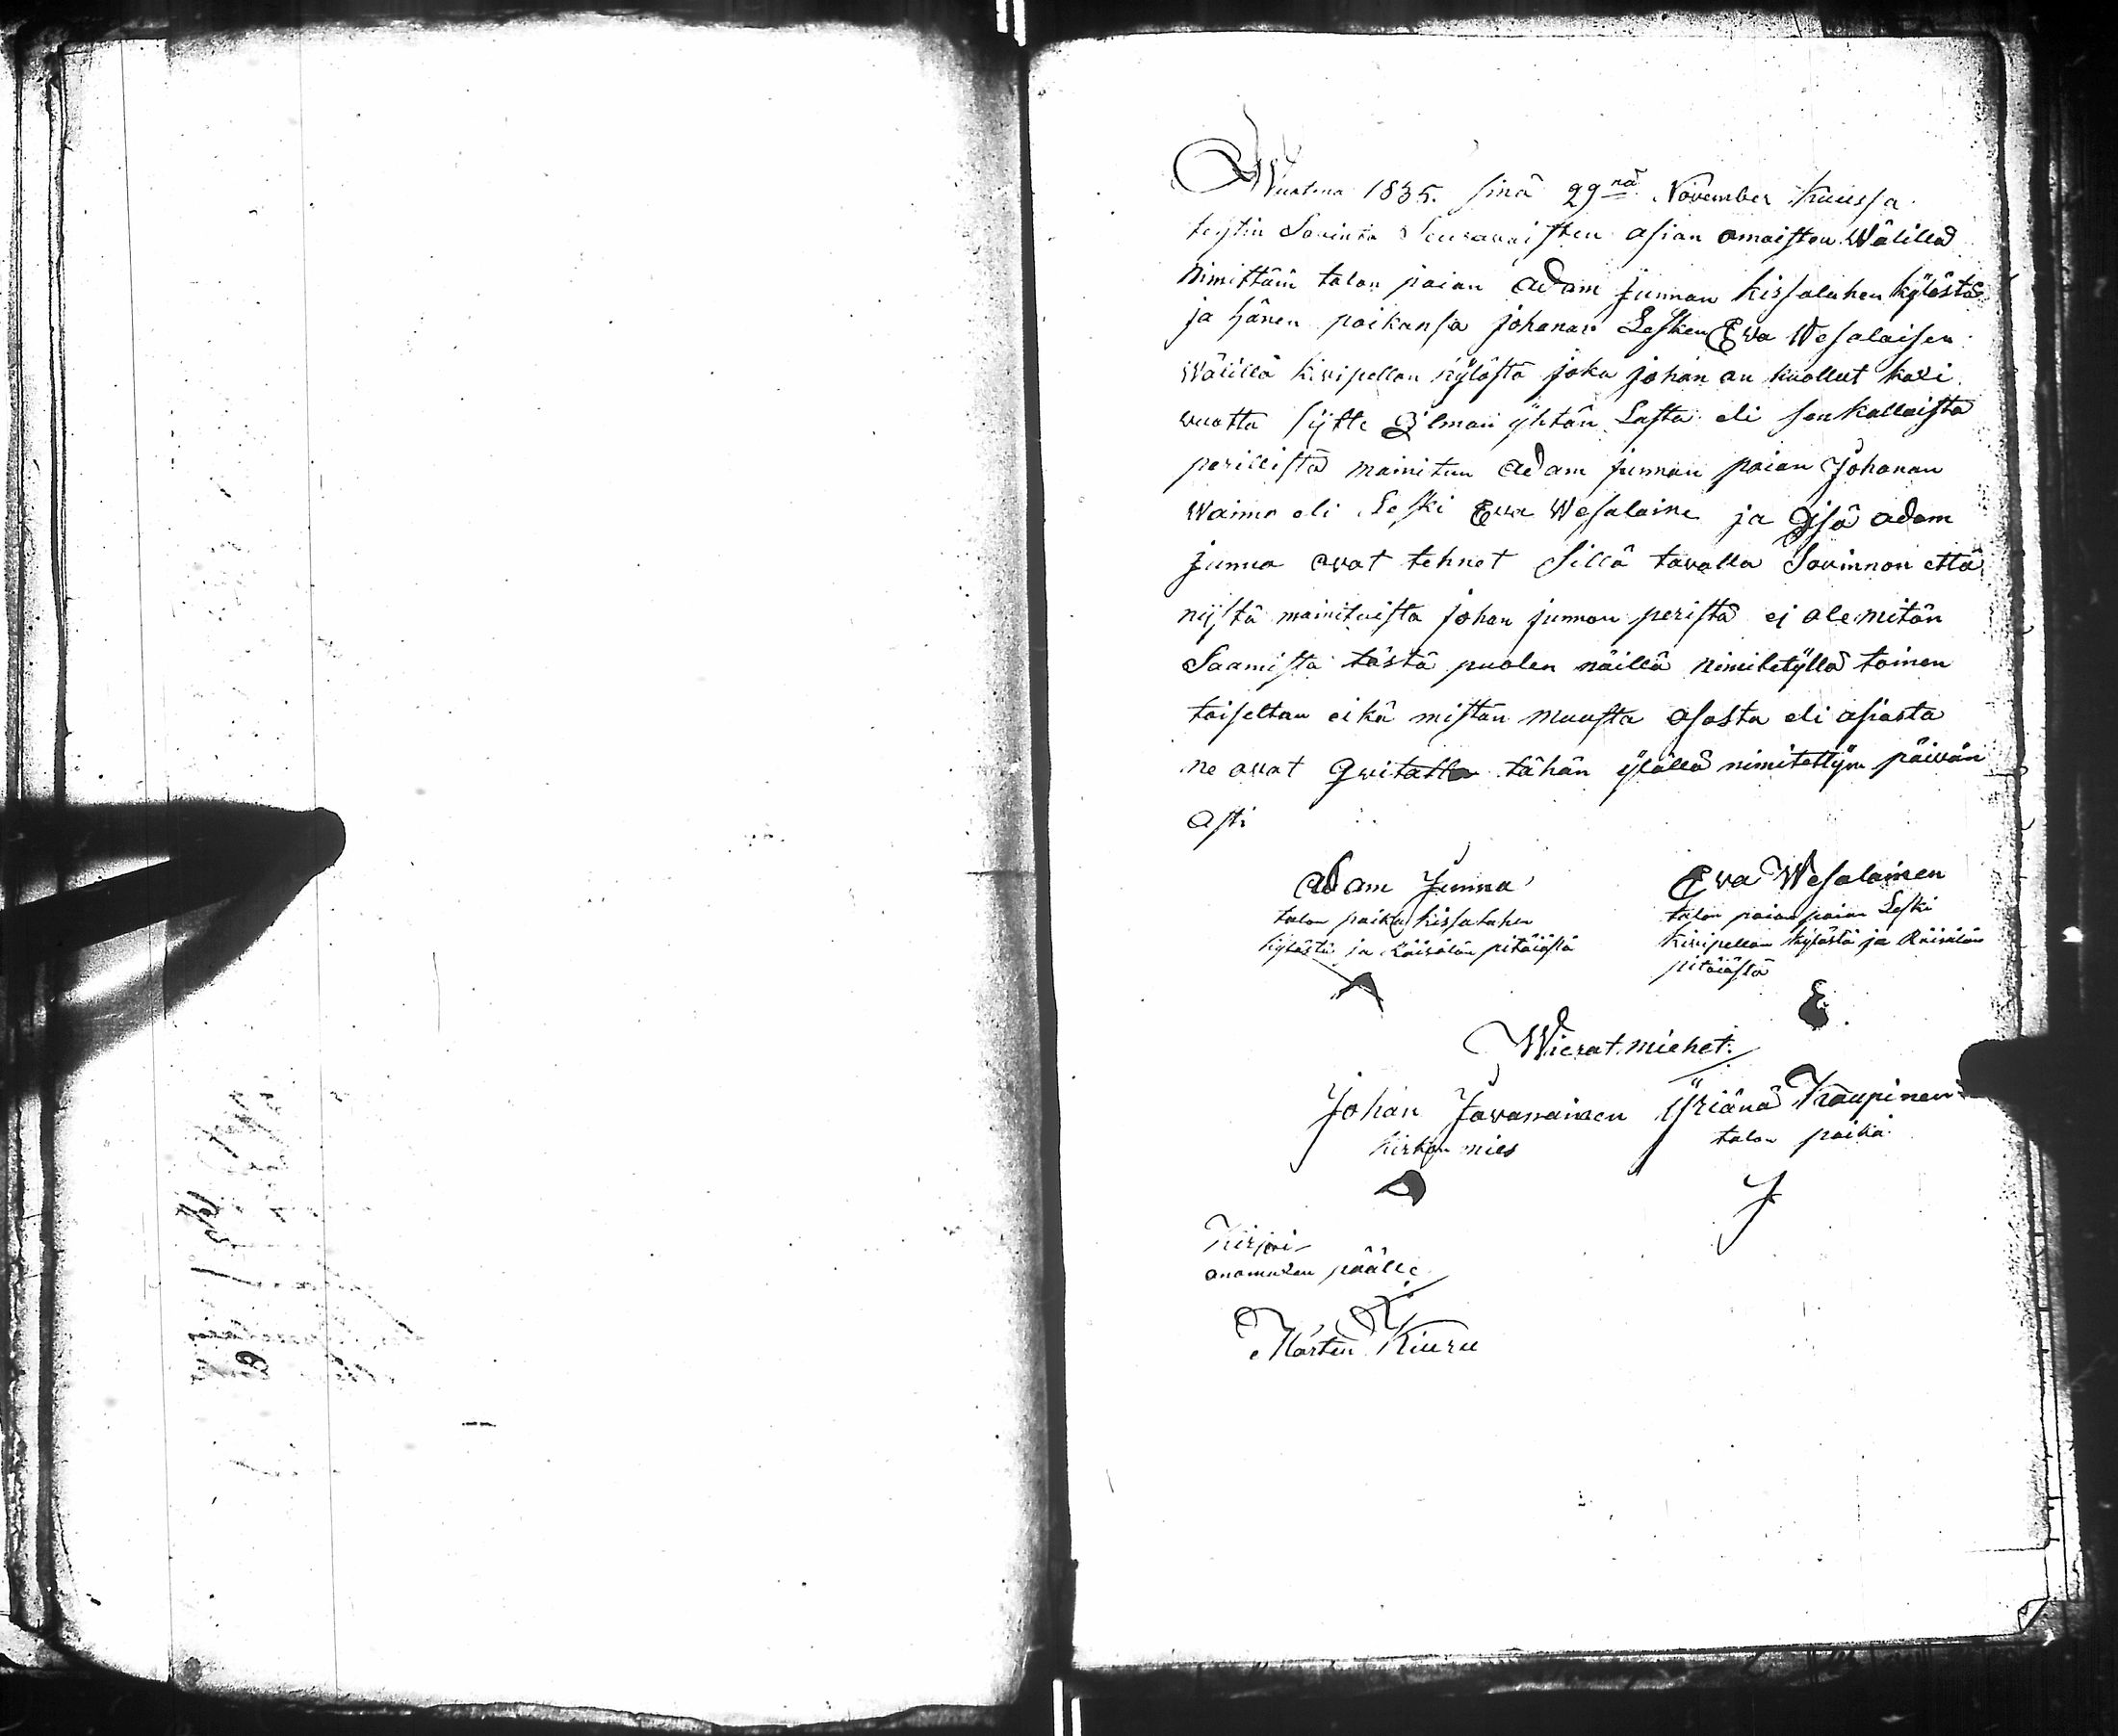 Wuotena 1835. sinä 29nä November Kuussa
teytin Sovinto Seuravaisten asian omaisten Wälillä
Nimittäin talon poian Adam Junnan kissalahen kylästä
ja hänen poikansa johanan Lesken Ewa Wesalaisen
Wälillä kivipellon kylästä joka johan on kuollut kaxi
wuotta sijtte Ilman yhtän Lasta eli senkallaista
perillistä mainitun Adam junnan poian Johanan
Waimo eli Leski Ewa Wesalaine ja Isä adam
Junna ovat tehnet Sillä tavalla Sovinnon että
nijstä mainituista johan junnan peristä ej ole mitän
Saamista tästä puolen näillä nimitetyllä toinen
toiseltan eikä mistän muusta osasta eli asiasta
ne ovat Qvitatta tähän ylällä nimitettyn päivän
Asti
Adam Junna Ewa Wesalainen
talon poika kissalahen talon poian poian Leski
kylästä ja Räisälän pitäjästä kivipellon kylästä ja Räisälän
pitäjästä
Wierat miehet:
Johan Javanainen Yriänä Kaupinen
kirkon mies talon poika
Kirjoi
anomuxen päälle
Mårten Kiuru